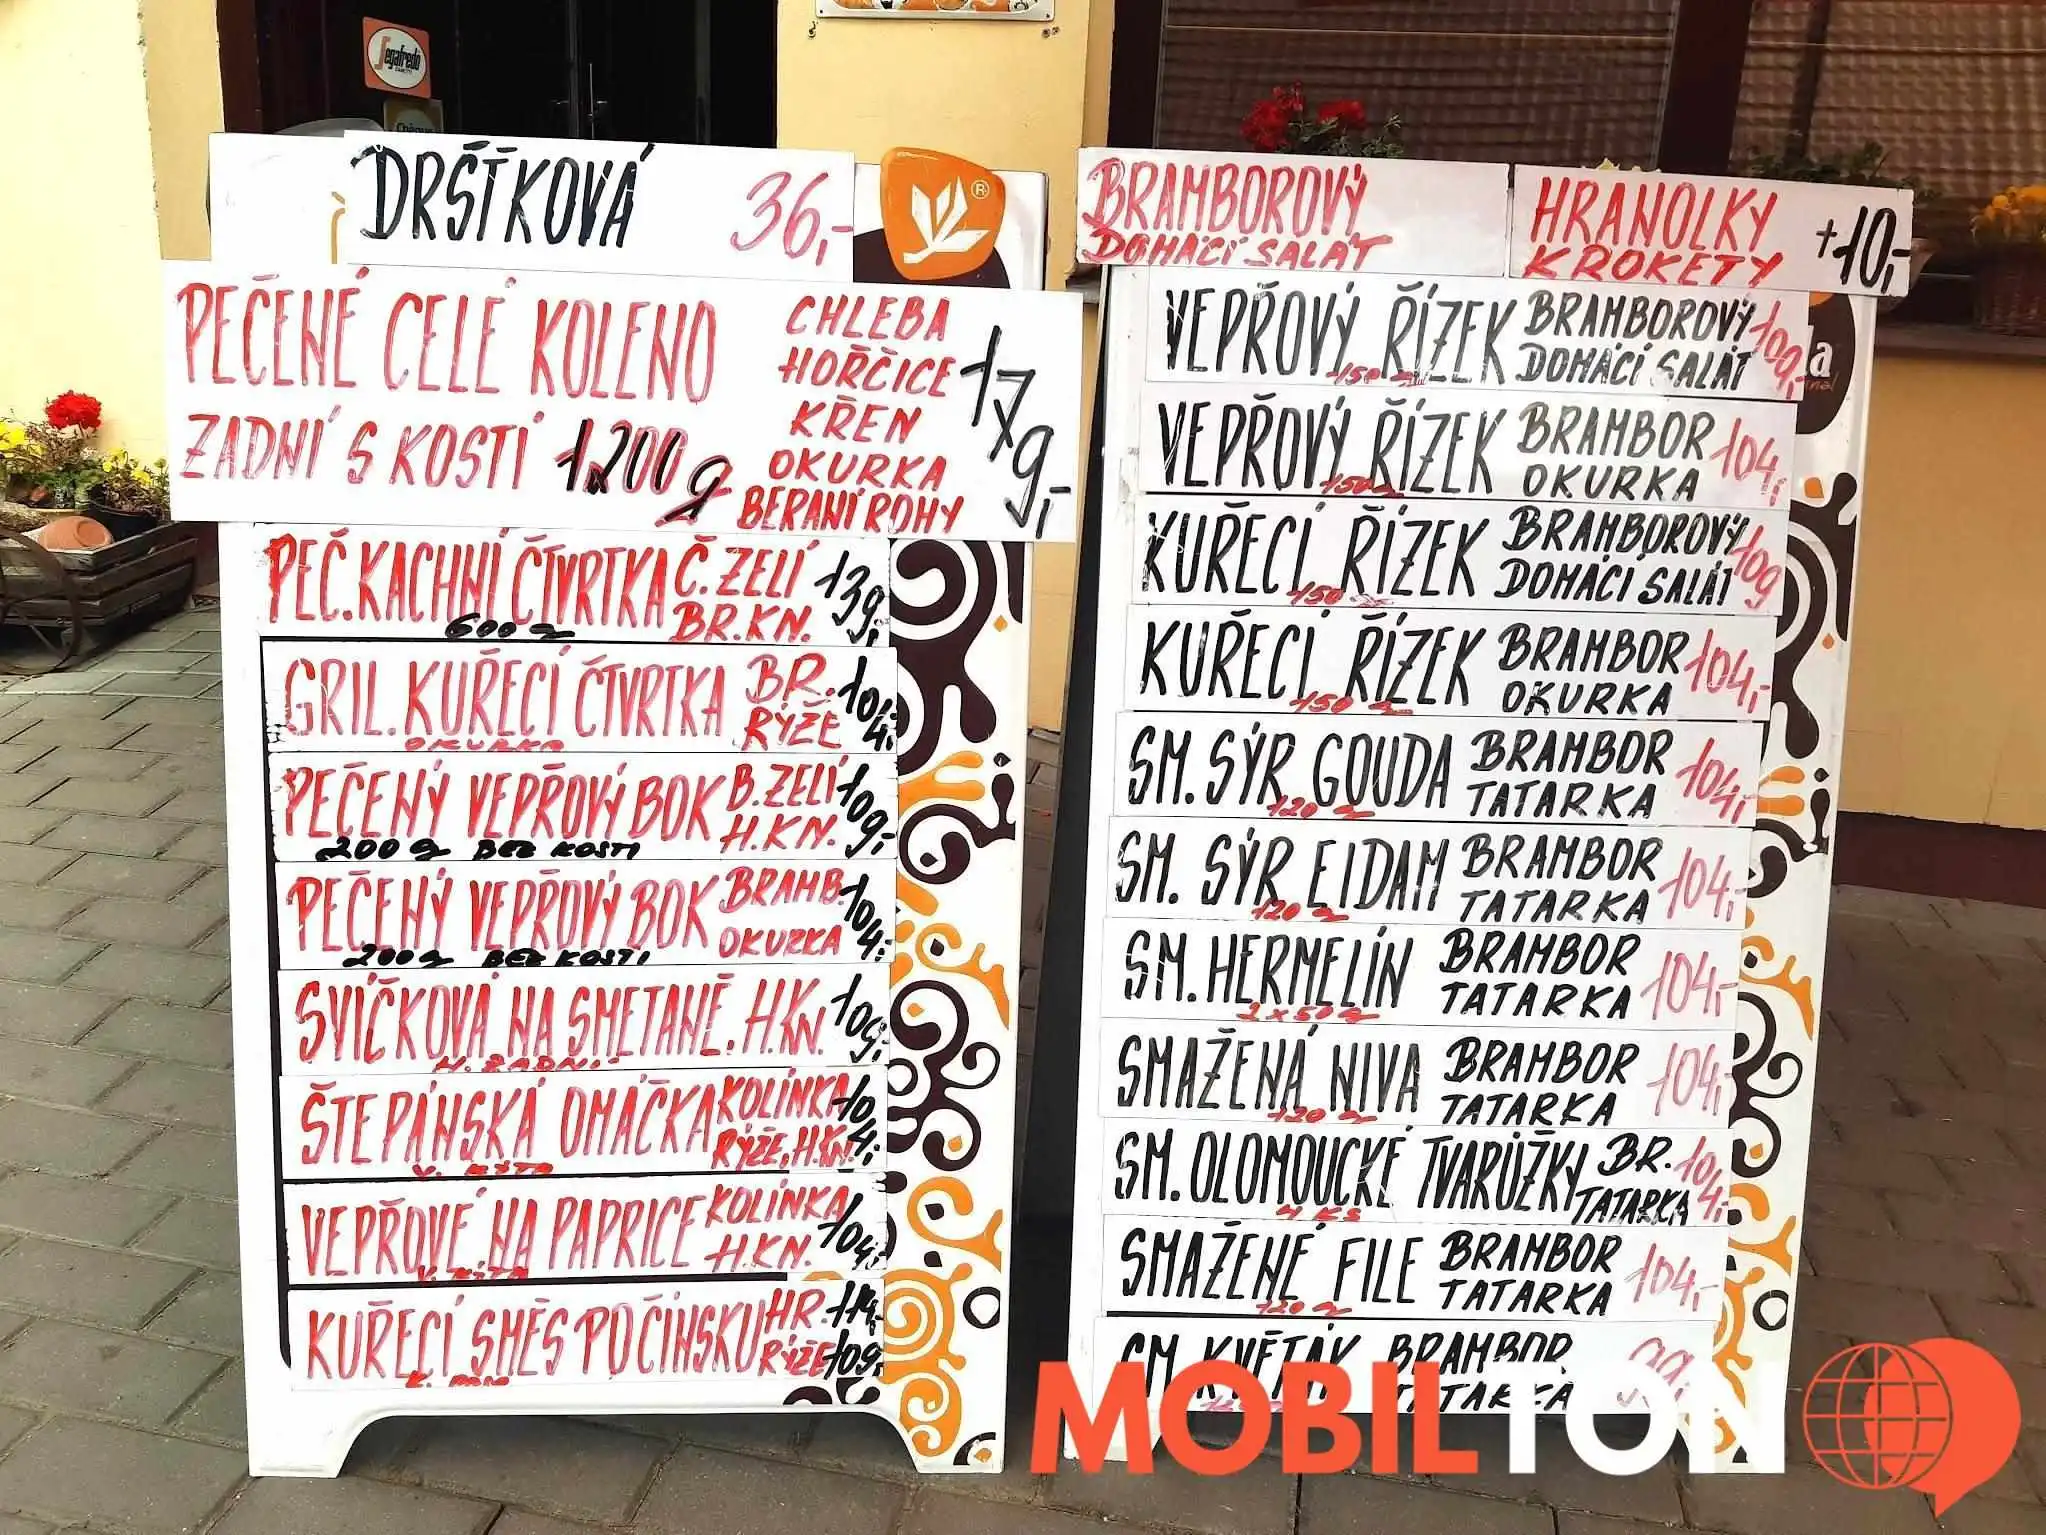 Segafredo
DRŠŤKOVÁ 36,-
PEČENÉ CELÉ KOLENO
ZADNÍ S KOSTÍ 1.200 g
CHLEBA
HOŘČICE
KŘEN
OKURKA
BERANÍ ROHY
179,-
PEČ. KACHNÍ ČTVRTKA Č. ZELÍ 139,-
600 g BR. KN.
GRIL. KUŘECÍ ČTVRTKA BR. 104,-
OKURKA RÝŽE
PEČENÝ VEPŘOVÝ BOK B. ZELÍ 109,-
200 g BEZ KOSTI H. KN.
PEČENÝ VEPŘOVÝ BOK BRAMB. 104,-
200 g BEZ KOSTI OKURKA
SVÍČKOVÁ NA SMETANĚ. H. KN. 109,-
ŠTEPÁNSKÁ OMÁČKA KOLÍNKA 104,-
RÝŽE, H. KN.
VEPŘOVÉ NA PAPRICE KOLÍNKA 104,-
H. KN.
KUŘECÍ SMĚS PO ČÍNSKU HR. 114,-
RÝŽE 109,-
BRAMBOROVÝ
DOMÁCÍ SALÁT
HRANOLKY
KROKETY
+10,-
VEPŘOVÝ ŘÍZEK BRAMBOROVÝ 109,-
150 g DOMÁCÍ SALÁT
VEPŘOVÝ ŘÍZEK BRAMBOR 104,-
150 g OKURKA
KUŘECÍ ŘÍZEK BRAMBOROVÝ 109
150 g DOMÁCÍ SALÁT
KUŘECÍ ŘÍZEK BRAMBOR 104,-
150 g OKURKA
SM. SÝR GOUDA BRAMBOR 104,-
120 g TATARKA
SM. SÝR EIDAM BRAMBOR 104,-
120 g TATARKA
SM. HERMELÍN BRAMBOR 104,-
2 x 50 g TATARKA
SMAŽENÁ NIVA BRAMBOR 104,-
120 g TATARKA
SM. OLOMOUCKÉ TVARŮŽKY BR. 104,-
4 KS TATARKA
SMAŽENÉ FILE BRAMBOR 104,-
120 g TATARKA
SM. KVĚTÁK BRAMBOR 99,-
TATARKA
MOBILTON